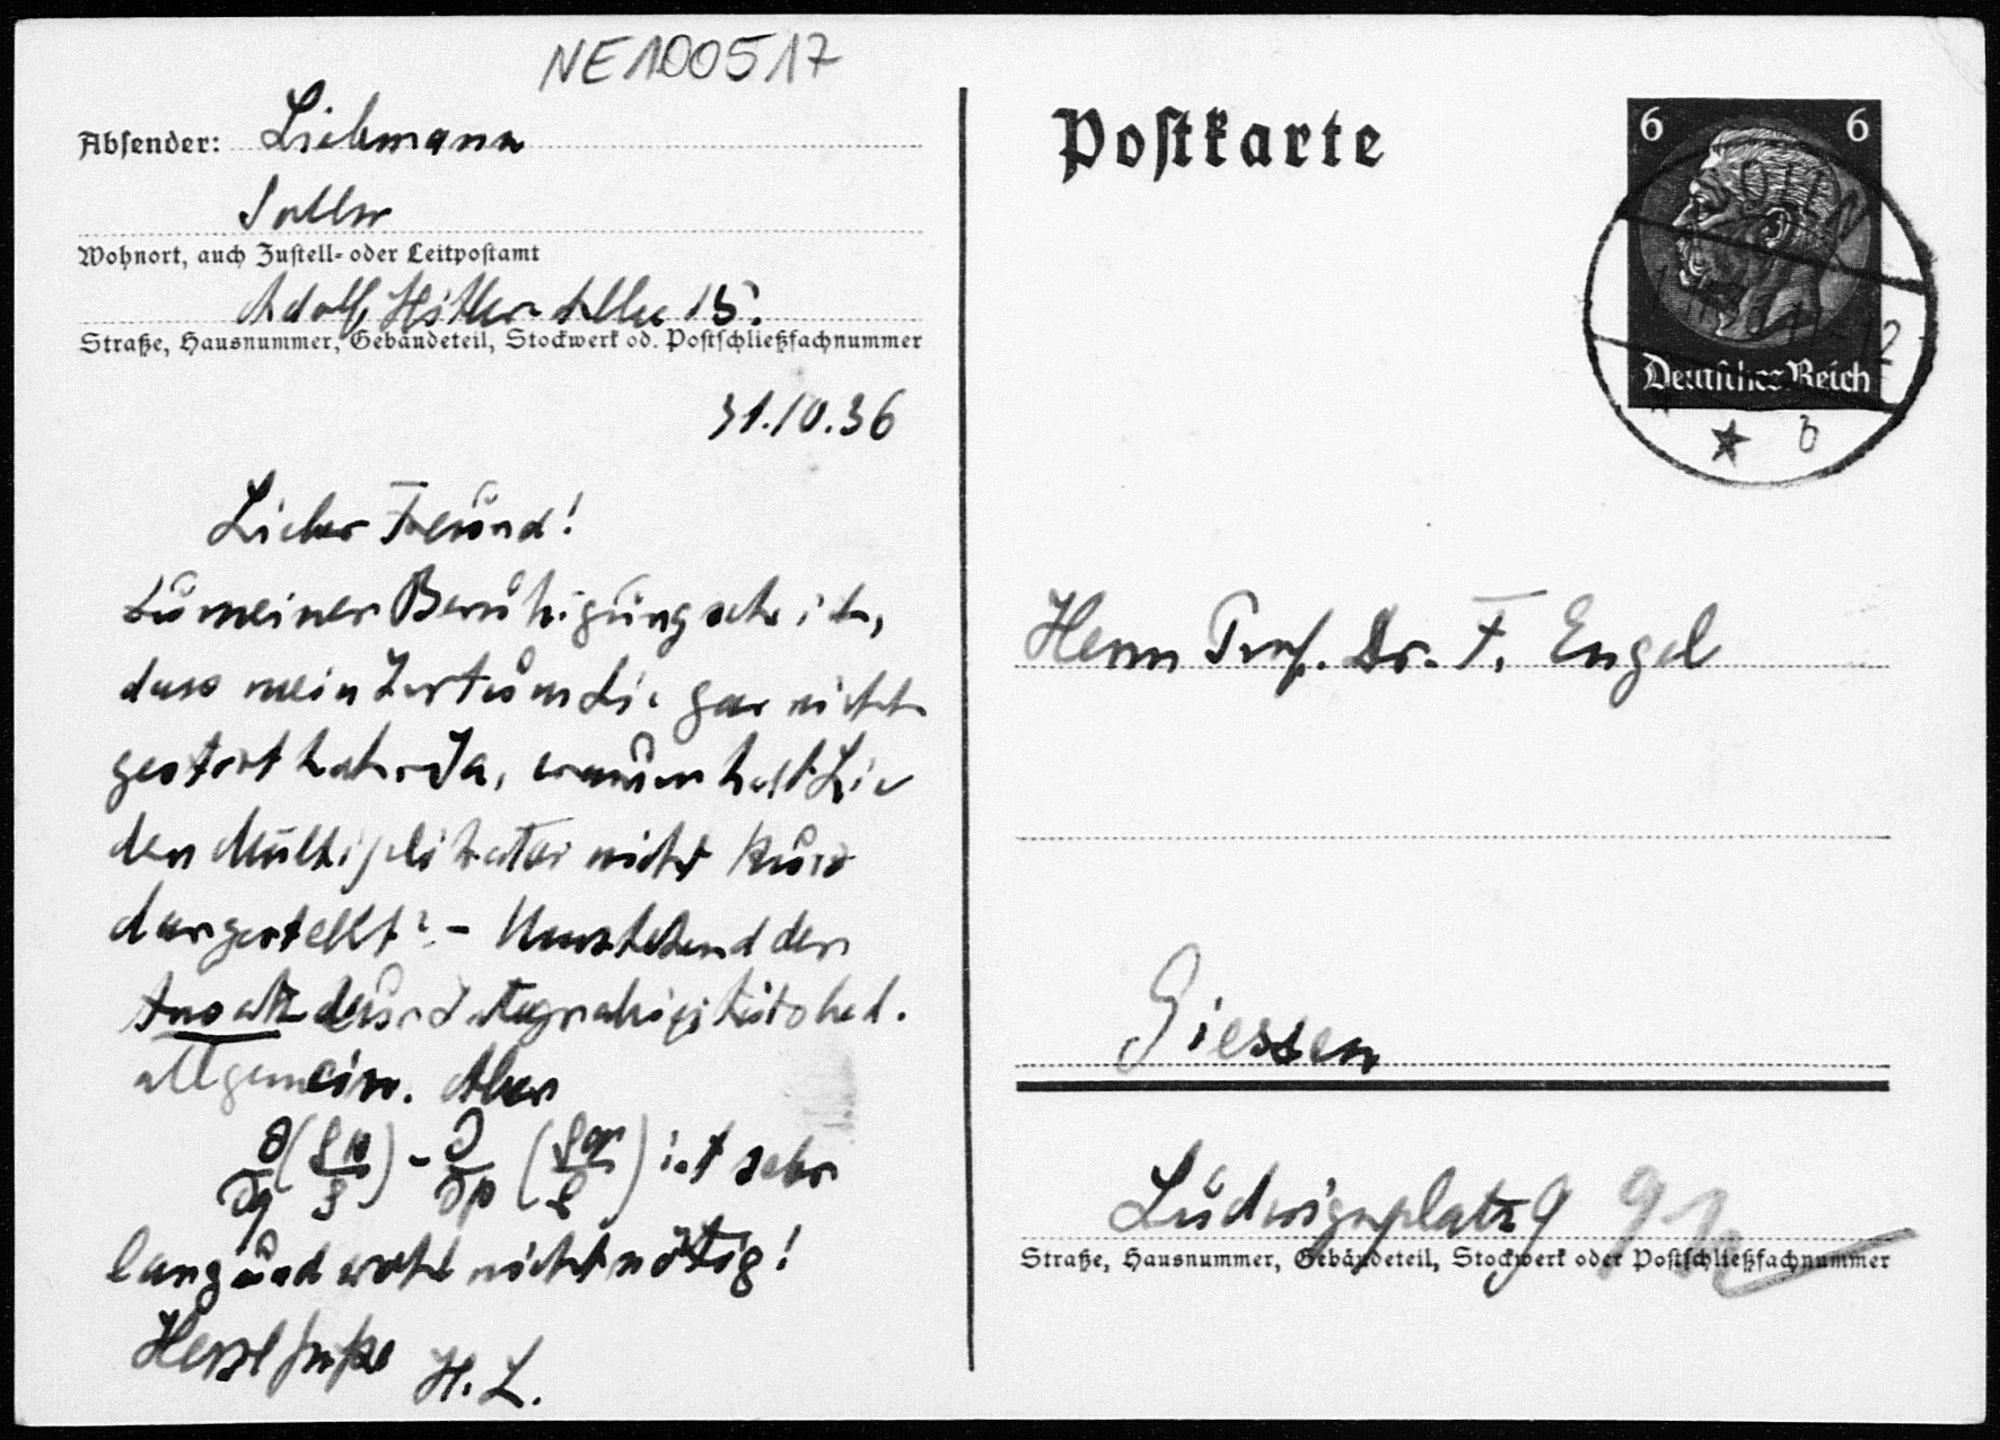 NE100517
Absender: Liebmann
Solln
Wohnort, auch Zustell- oder Leitpostamt
Adolf Hitler-Allee 15.
Straße, Hausnummer, Gebäudeteil, Stockwerk od. Postschließfachnummer
31.10.36
Lieber Freund!
Zu meiner Beruhigung sehe ich,
dass mein Irrtum Sie gar nicht
gestört hat. Ja, warum hat Lie
den Multiplikator nicht kurz
dargestellt? - Umstehend der
Ansatz der Integrabilitätsbed.
allgemein. Aber
ist sehr
lang und wohl nicht nötig!
Herzl Grüße H. L.
Postkarte
6 6
Deutsches Reich
Herrn Prof. Dr. F. Engel
Giessen
Ludwigsplatz 9
Straße, Hausnummer, Gebäudeteil, Stockwerk oder Postschließfachnummer